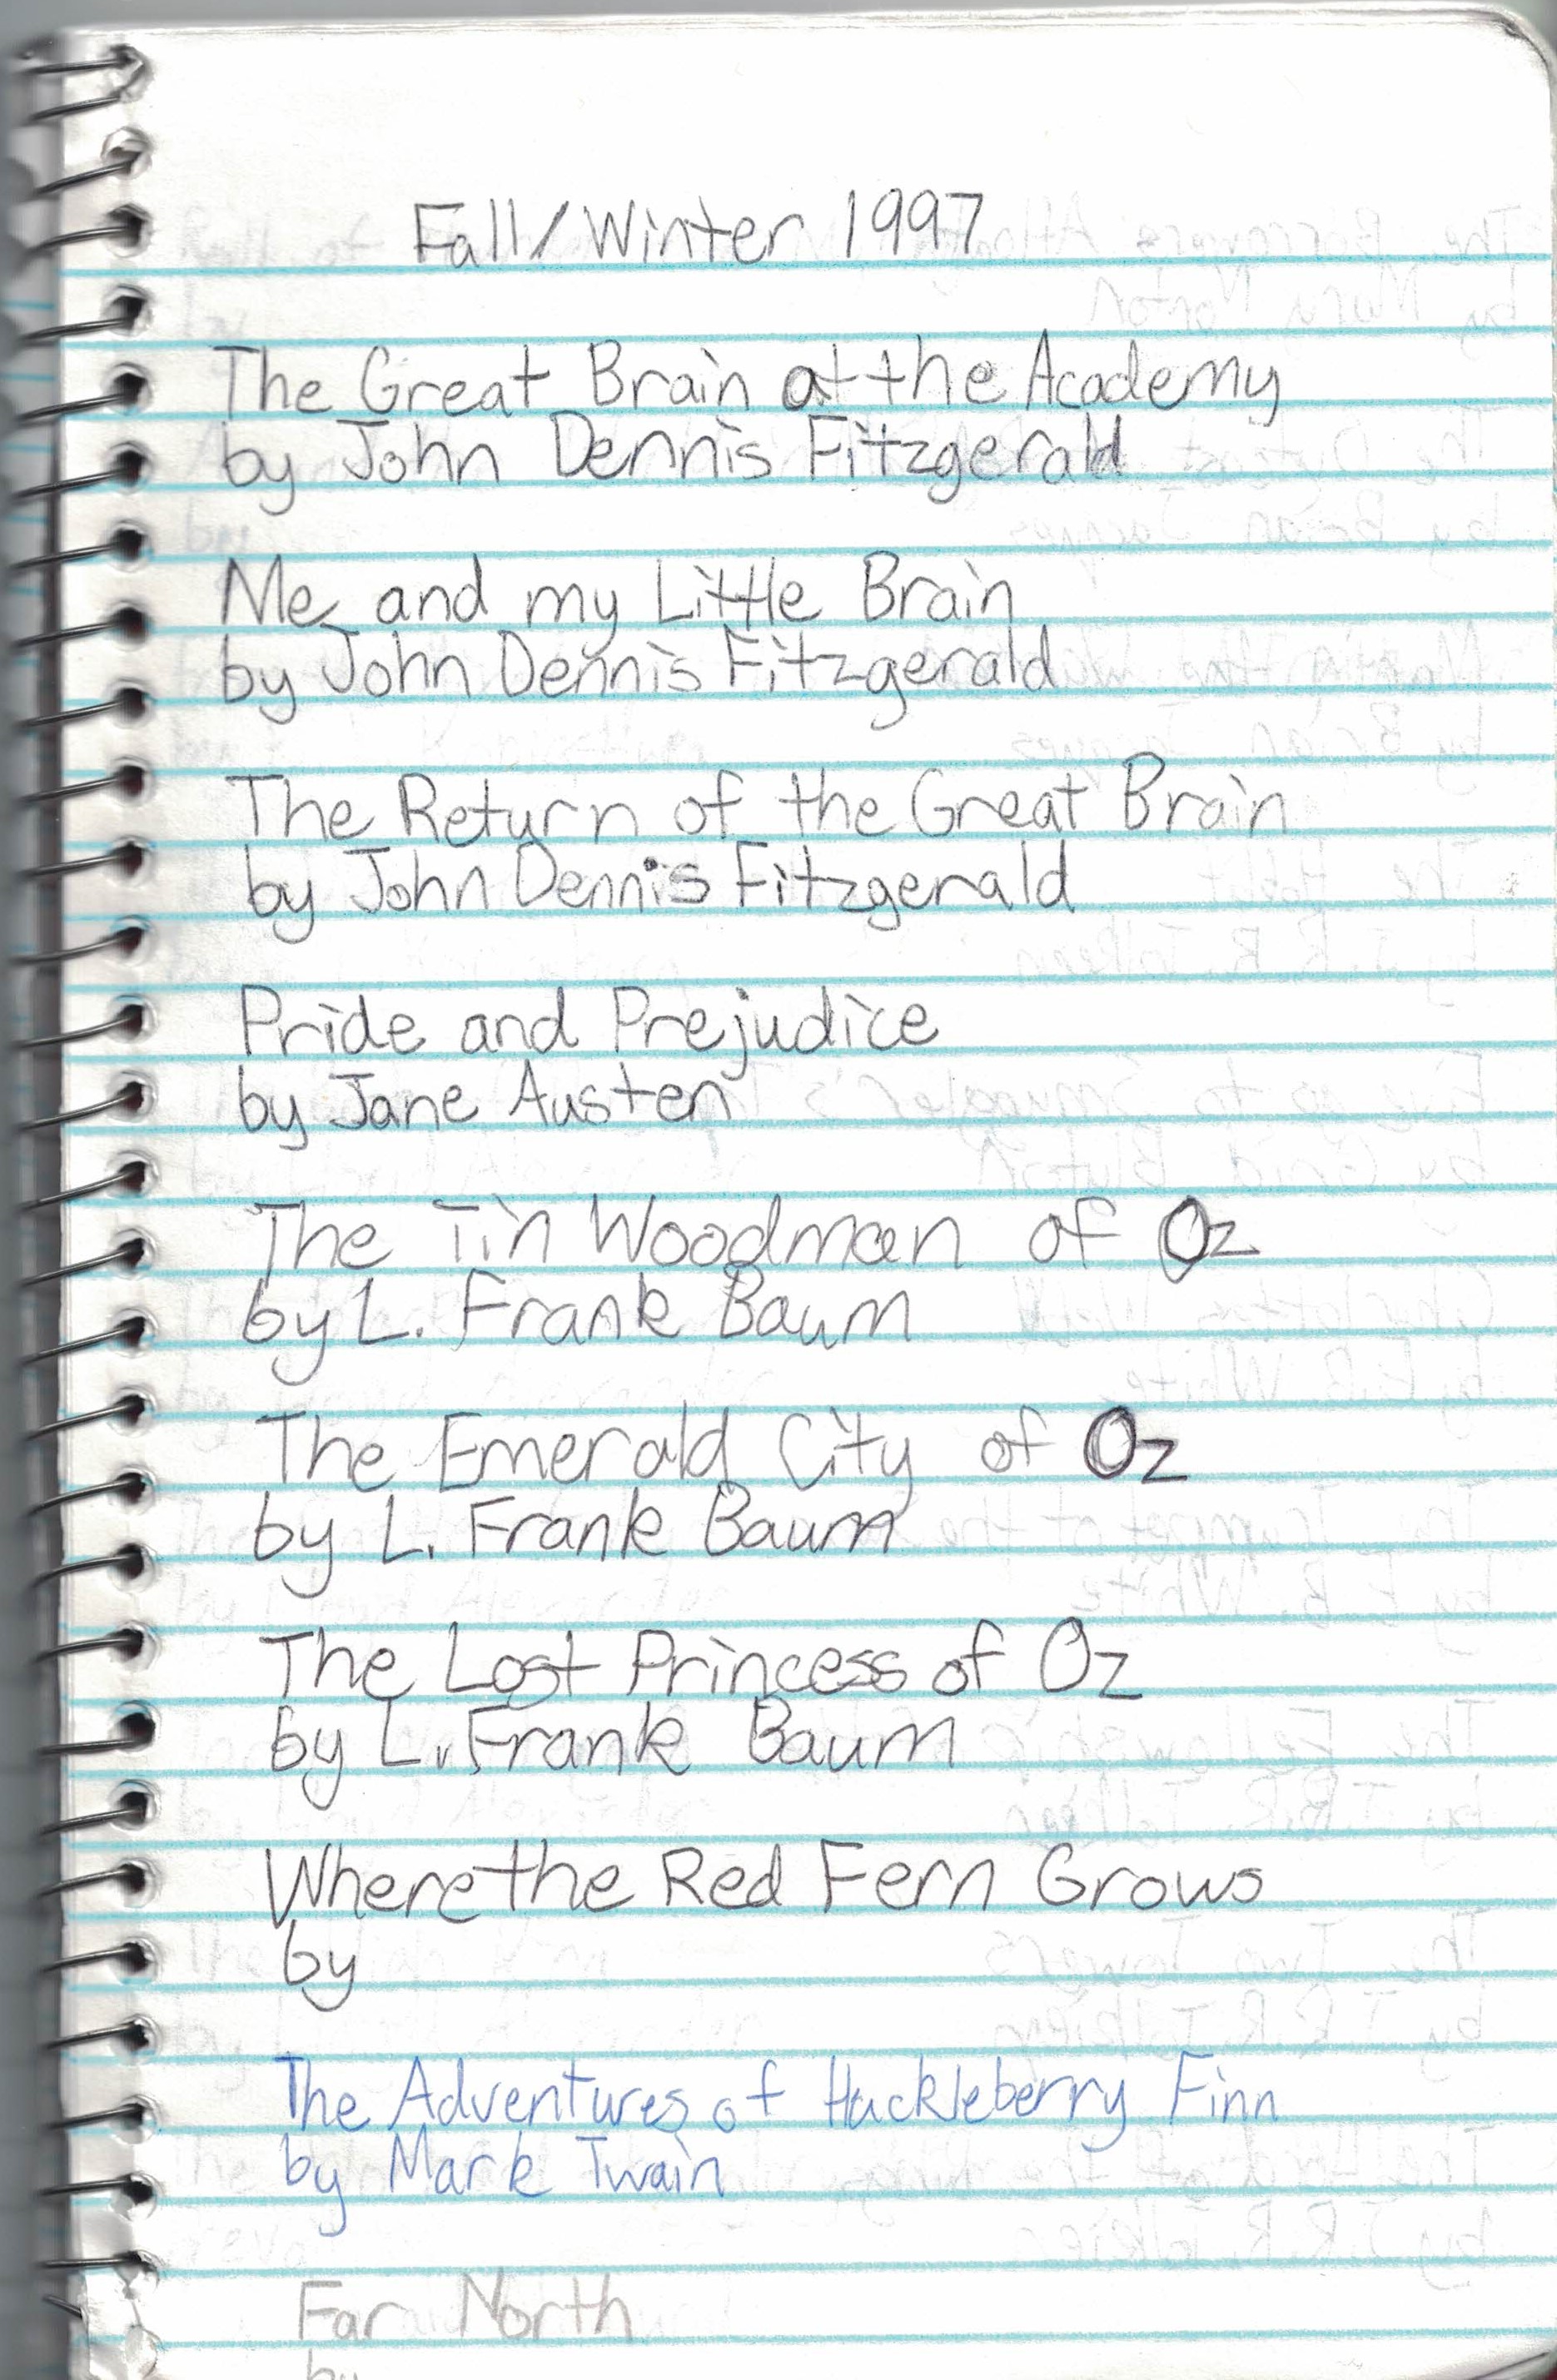 Fall/Winter 1997
The Great Brain at the Academy
by John Dennis Fitzgerald
Me and my Little Brain
by John Dennis Fitzgerald
The Return of the Great Brain
by John Dennis Fitzgerald
Pride and Prejudice
by Jane Austen
The Tin Woodman of Oz
by L. Frank Baum
The Emerald City of Oz
by L. Frank Baum
The Lost Princess of Oz
by L. Frank Baum
Where the Red Fern Grows
by
The Adventures of Huckleberry Finn
by Mark Twain
Far North
by